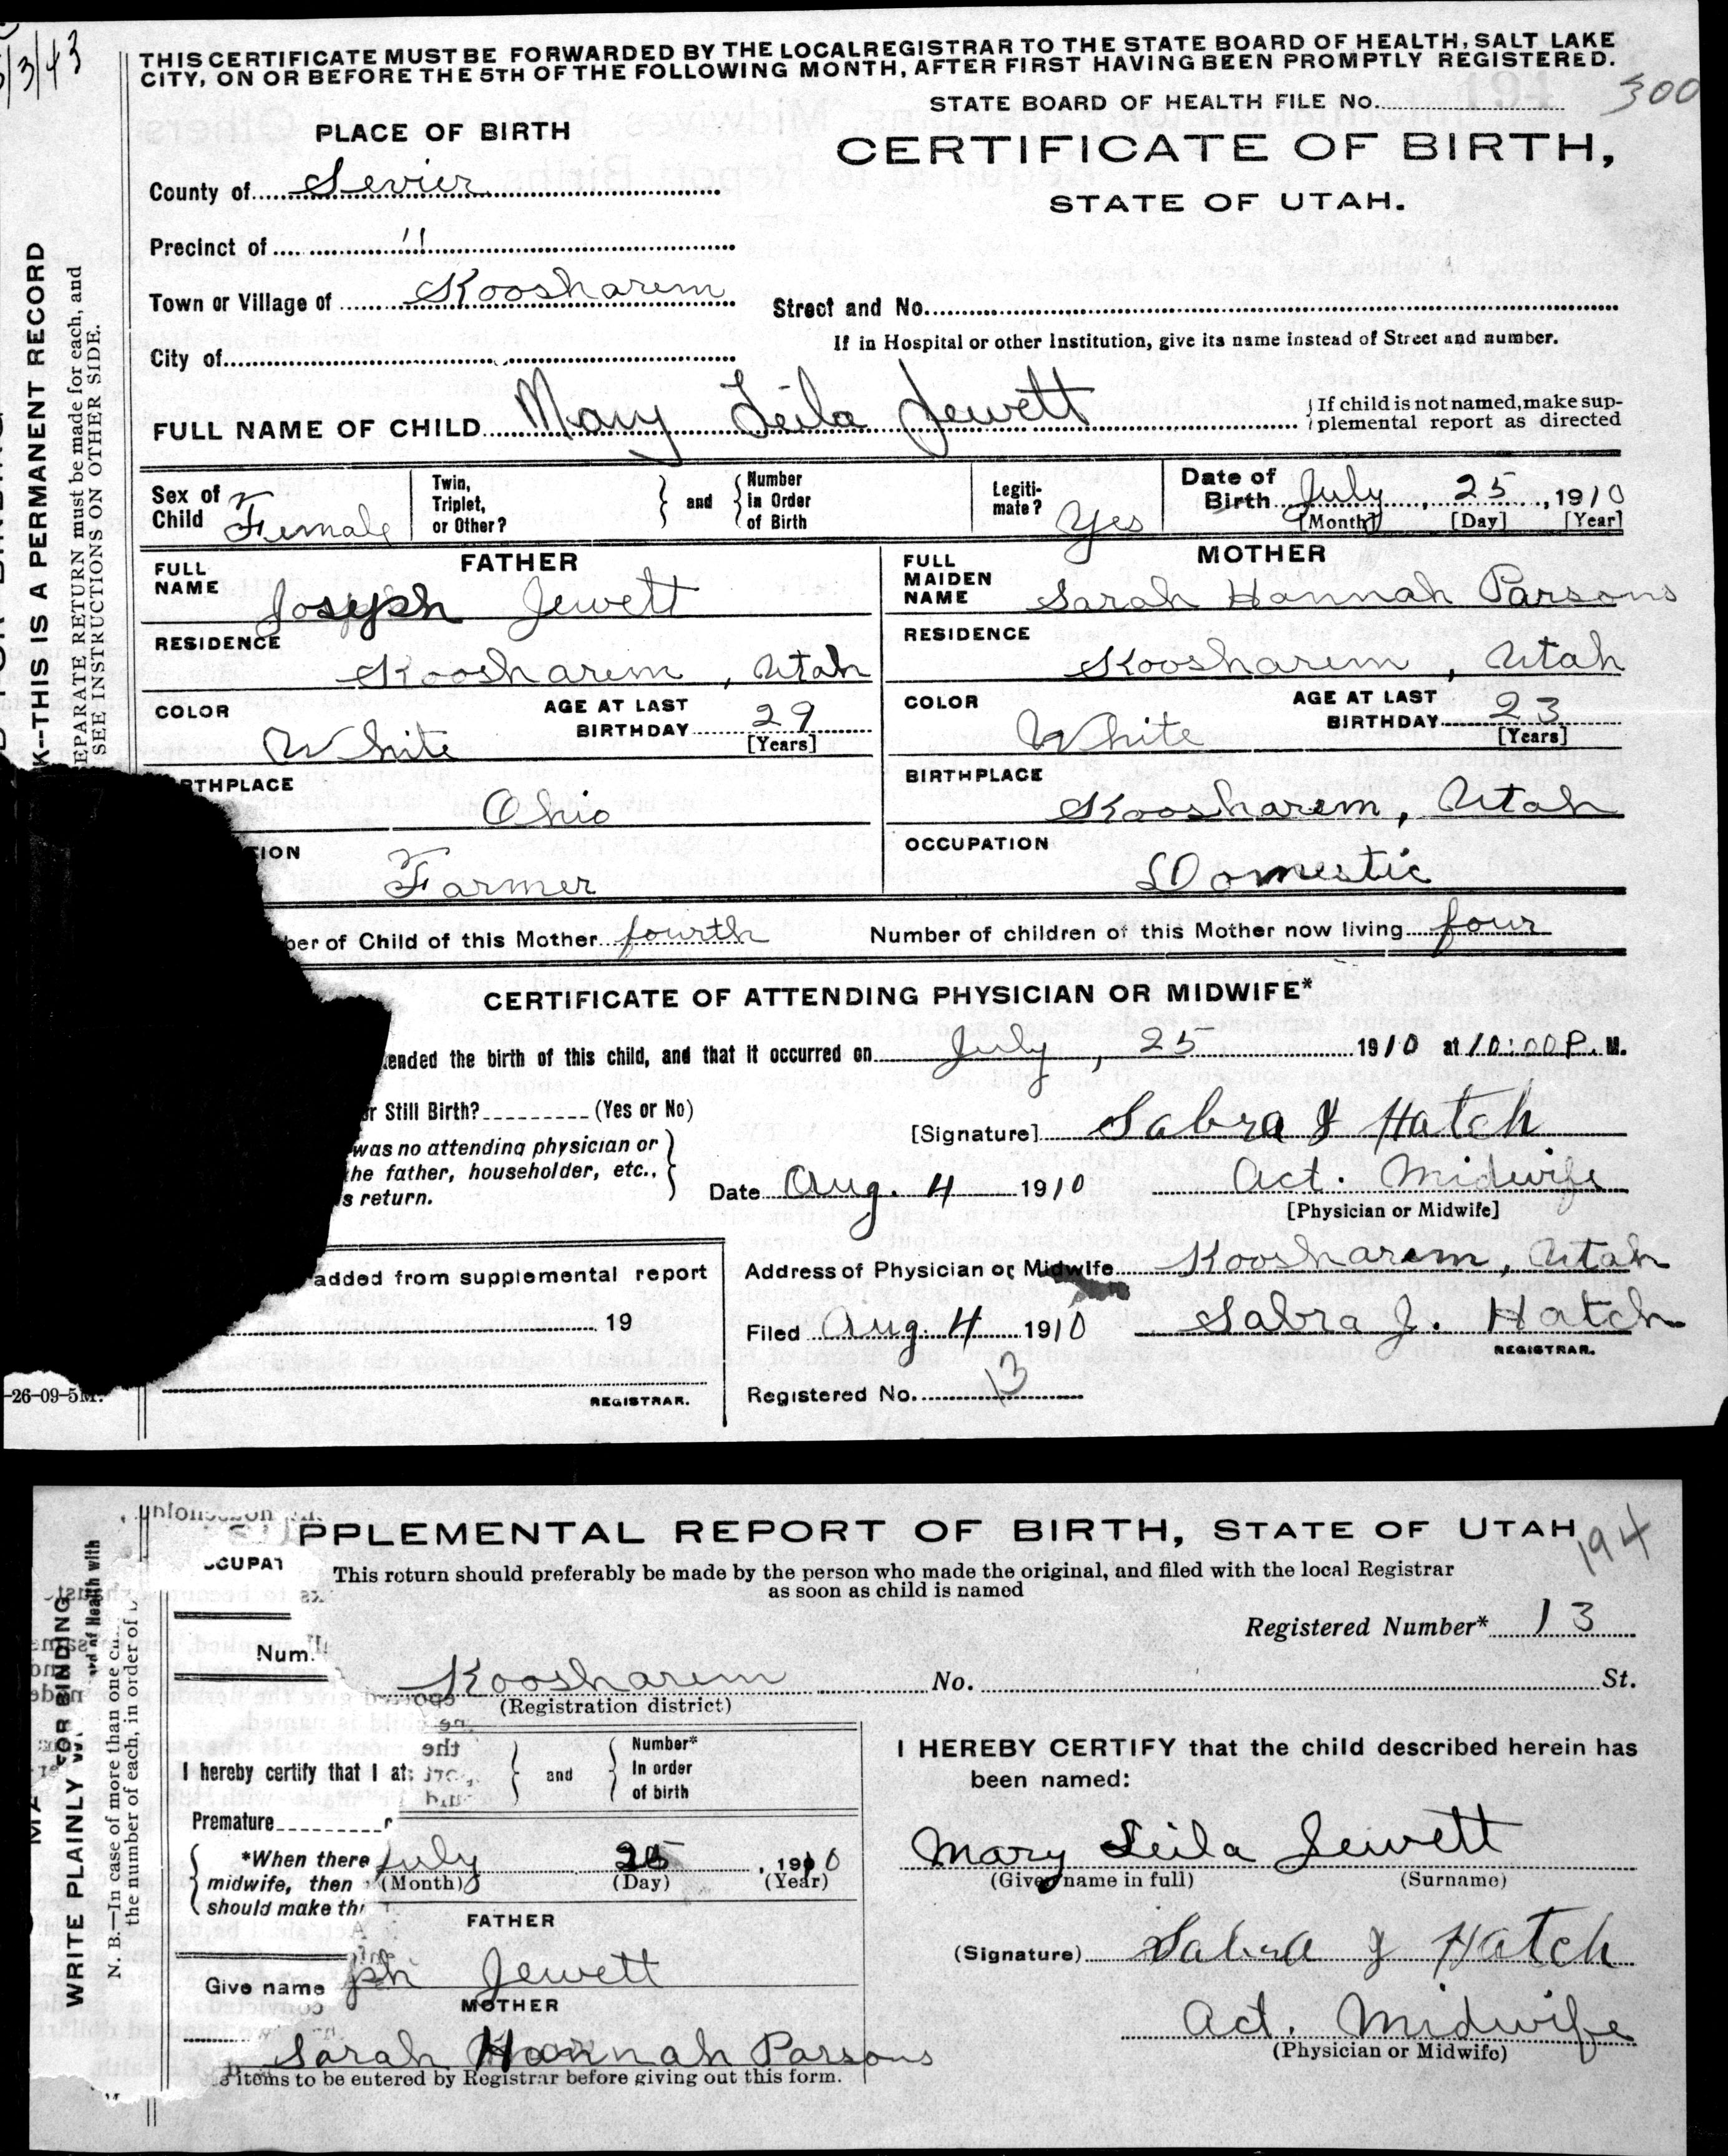 5/3/43
THIS CERTIFICATE MUST BE FORWARDED BY THE LOCAL REGISTRAR TO THE STATE BOARD OF HEALTH, SALT LAKE
CITY, ON OR BEFORE THE 5TH OF THE FOLLOWING MONTH, AFTER FIRST HAVING BEEN PROMPTLY REGISTERED.
STATE BOARD OF HEALTH FILE No. 300
PLACE OF BIRTH
CERTIFICATE OF BIRTH,
STATE OF UTAH.
County of Sevier
Precinct of "
Town or Village of Koosharem
Street and No.
If in Hospital or other Institution, give its name instead of Street and number.
City of
FULL NAME OF CHILD Mary Leila Jewett
If child is not named, make sup-
plemental report as directed
Sex of
Child Female
Twin,
Triplet,
or Other?
and
Number
in Order
of Birth
Legiti-
mate? Yes
Date of
Birth July, 25, 1910
[Month] [Day] [Year]
FATHER
FULL
NAME Joseph Jewett
RESIDENCE
Koosharem, Utah
COLOR White
AGE AT LAST
BIRTHDAY 29
[Years]
RTHPLACE
Ohio
TION
Farmer
MOTHER
FULL
MAIDEN
NAME Sarah Hannah Parsons
RESIDENCE
Koosharem, Utah
COLOR White
AGE AT LAST
BIRTHDAY 23
[Years]
BIRTHPLACE
Koosharem, Utah
OCCUPATION
Domestic
ber of Child of this Mother fourth Number of children of this Mother now living four
CERTIFICATE OF ATTENDING PHYSICIAN OR MIDWIFE*
ended the birth of this child, and that it occurred on July, 25 1910 at 10:00 P. M.
r Still Birth? (Yes or No)
was no attending physician or
he father, householder, etc.,
s return.
[Signature] Sabra J Hatch
Date Aug. 4 1910 Act. Midwife
[Physician or Midwife]
added from supplemental report
19
REGISTRAR.
Address of Physician or Midwife Koosharem, Utah
Filed Aug. 4 1910 Sabra J. Hatch
REGISTRAR.
Registered No. 13
K--THIS IS A PERMANENT RECORD
EPARATE RETURN must be made for each, and
SEE INSTRUCTIONS ON OTHER SIDE.
-26-09-5M.
PPLEMENTAL REPORT OF BIRTH, STATE OF UTAH
194
CUPAT
This return should preferably be made by the person who made the original, and filed with the local Registrar
as soon as child is named
Registered Number* 13
Num
Koosharem No. St.
(Registration district)
I hereby certify that I at
and
Number*
In order
of birth
Premature
*When there
midwife, then
should make th
July 25, 1910
(Month) (Day) (Year)
FATHER
Give name
ph Jewett
MOTHER
Sarah Hannah Parsons
items to be entered by Registrar before giving out this form.
I HEREBY CERTIFY that the child described herein has
been named:
Mary Leila Jewett
(Given name in full) (Surname)
(Signature) Sabra J Hatch
Act. Midwife
(Physician or Midwife)
WRITE PLAINLY
OR BINDING
rd of Health with
N. B.—In case of more than one
the number of each, in order of